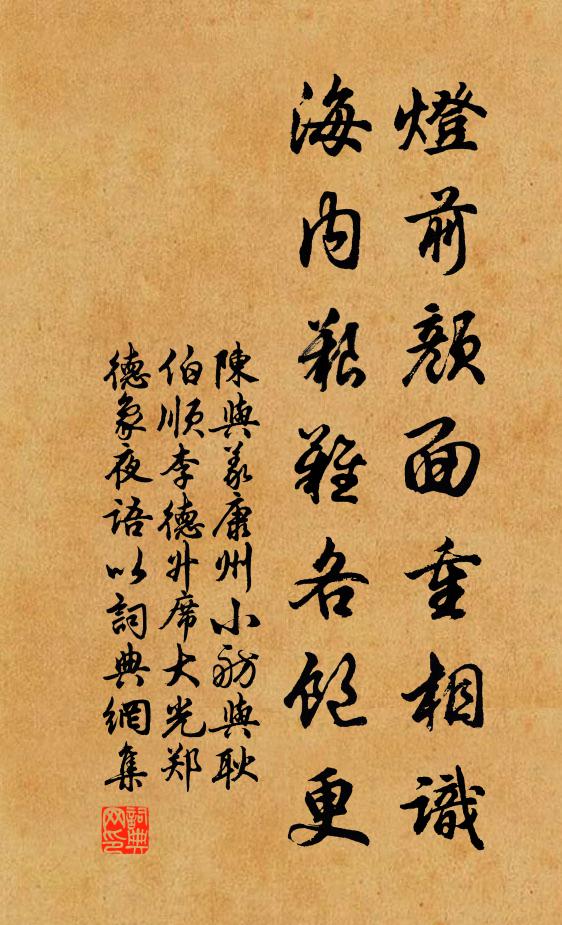 燈前顏面重相識
海內艱難各飽更
陳與義康州小舫與耿
伯順李德升席大光郑
德象夜語以詞典網集
詞典
网印